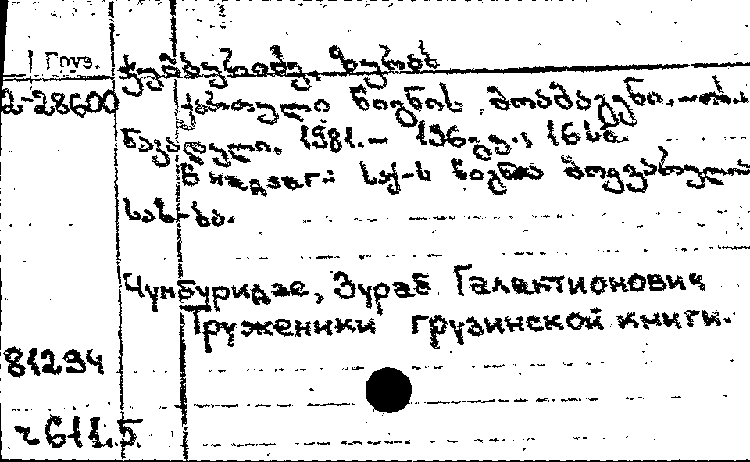 Груз.
ჭუმბურიძე, ზურაბ
2-28600 ქართული წიგნის მოამაგენი. — თბ.:
ნაკადული. 1981. — 196გვ.; 16სმ.
В надзаг.: საქ-ს წიგნის მოყვარულთა
საზ-ბა.
Чумбуридзе, Зураб Галактионович
Труженики грузинской книги.
81294
г611.5